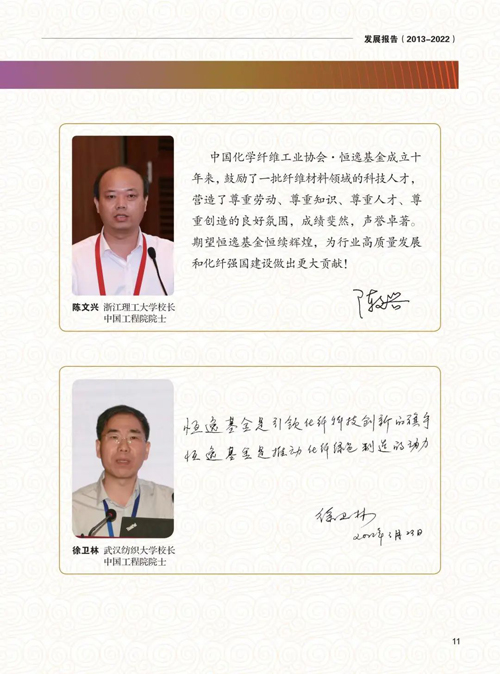 发展报告（2013-2022）
中国化学纤维工业协会·恒逸基金成立十
年来，鼓励了一批纤维材料领域的科技人才，
营造了尊重劳动、尊重知识、尊重人才、尊
重创造的良好氛围，成绩斐然，声誉卓著。
期望恒逸基金恒续辉煌，为行业高质量发展
和化纤强国建设做出更大贡献！
陈文兴
陈文兴 浙江理工大学校长
中国工程院院士
恒逸基金是引领化纤科技创新的旗手
恒逸基金是推动化纤绿色制造的动力
徐卫林
徐卫林 武汉纺织大学校长
中国工程院院士
11